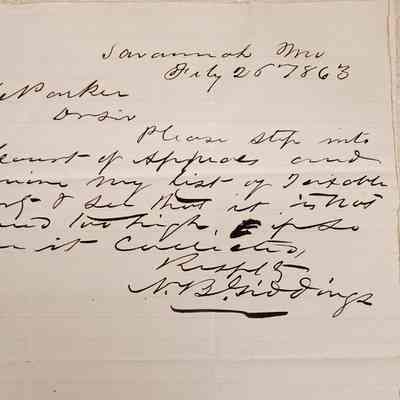 Savannah Mo
July 26 1863
Parker
Dr Sir
Please step into
Court of Appeals and
my list of Taxable
& see that it is not
too high, if so
it Corrected,
Respfly
N. B. Giddings